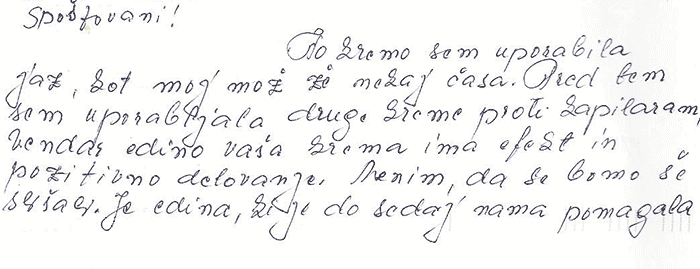 Spoštovani!
To kremo sem uporabila
jaz, kot moj mož že nekaj časa. Pred tem
sem uporabljala druge kreme proti kapilaram,
vendar edino vaša krema ima efekt in
pozitivno delovanje. Menim, da se bomo še
slišali. Je edina, ki je do sedaj nama pomagala